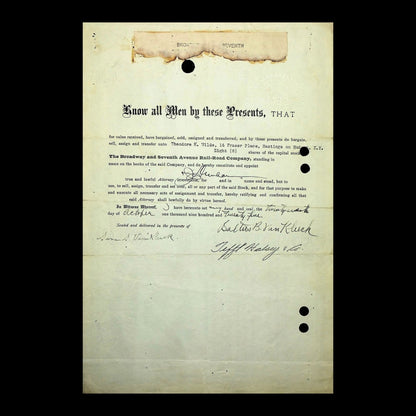 SEVENTH
Know all Men by these Presents, THAT
for value received, have bargained, sold, assigned and transferred, and by these presents do bargain,
sell, assign and transfer unto Theodore E. Wilds, 14 Fraser Place, Hastings on N.Y.
Eight (8) shares of the capital
The Broadway and Seventh Avenue Rail-Road Company, standing in
name on the books of the said Company, and do hereby constitute and appoint
true and lawful Attorney, for and in name and stead, but to
use, to sell, assign, transfer and set over, all or any part of the said Stock, and for that purpose to make
and execute all necessary acts of assignment and transfer, hereby ratifying and confirming all that
said Attorney shall lawfully do by virtue hereof.
In Witness Whereof, I have hereunto set my hand and seal, the
day of October one thousand nine hundred and twenty five.
Sealed and delivered in the presence of